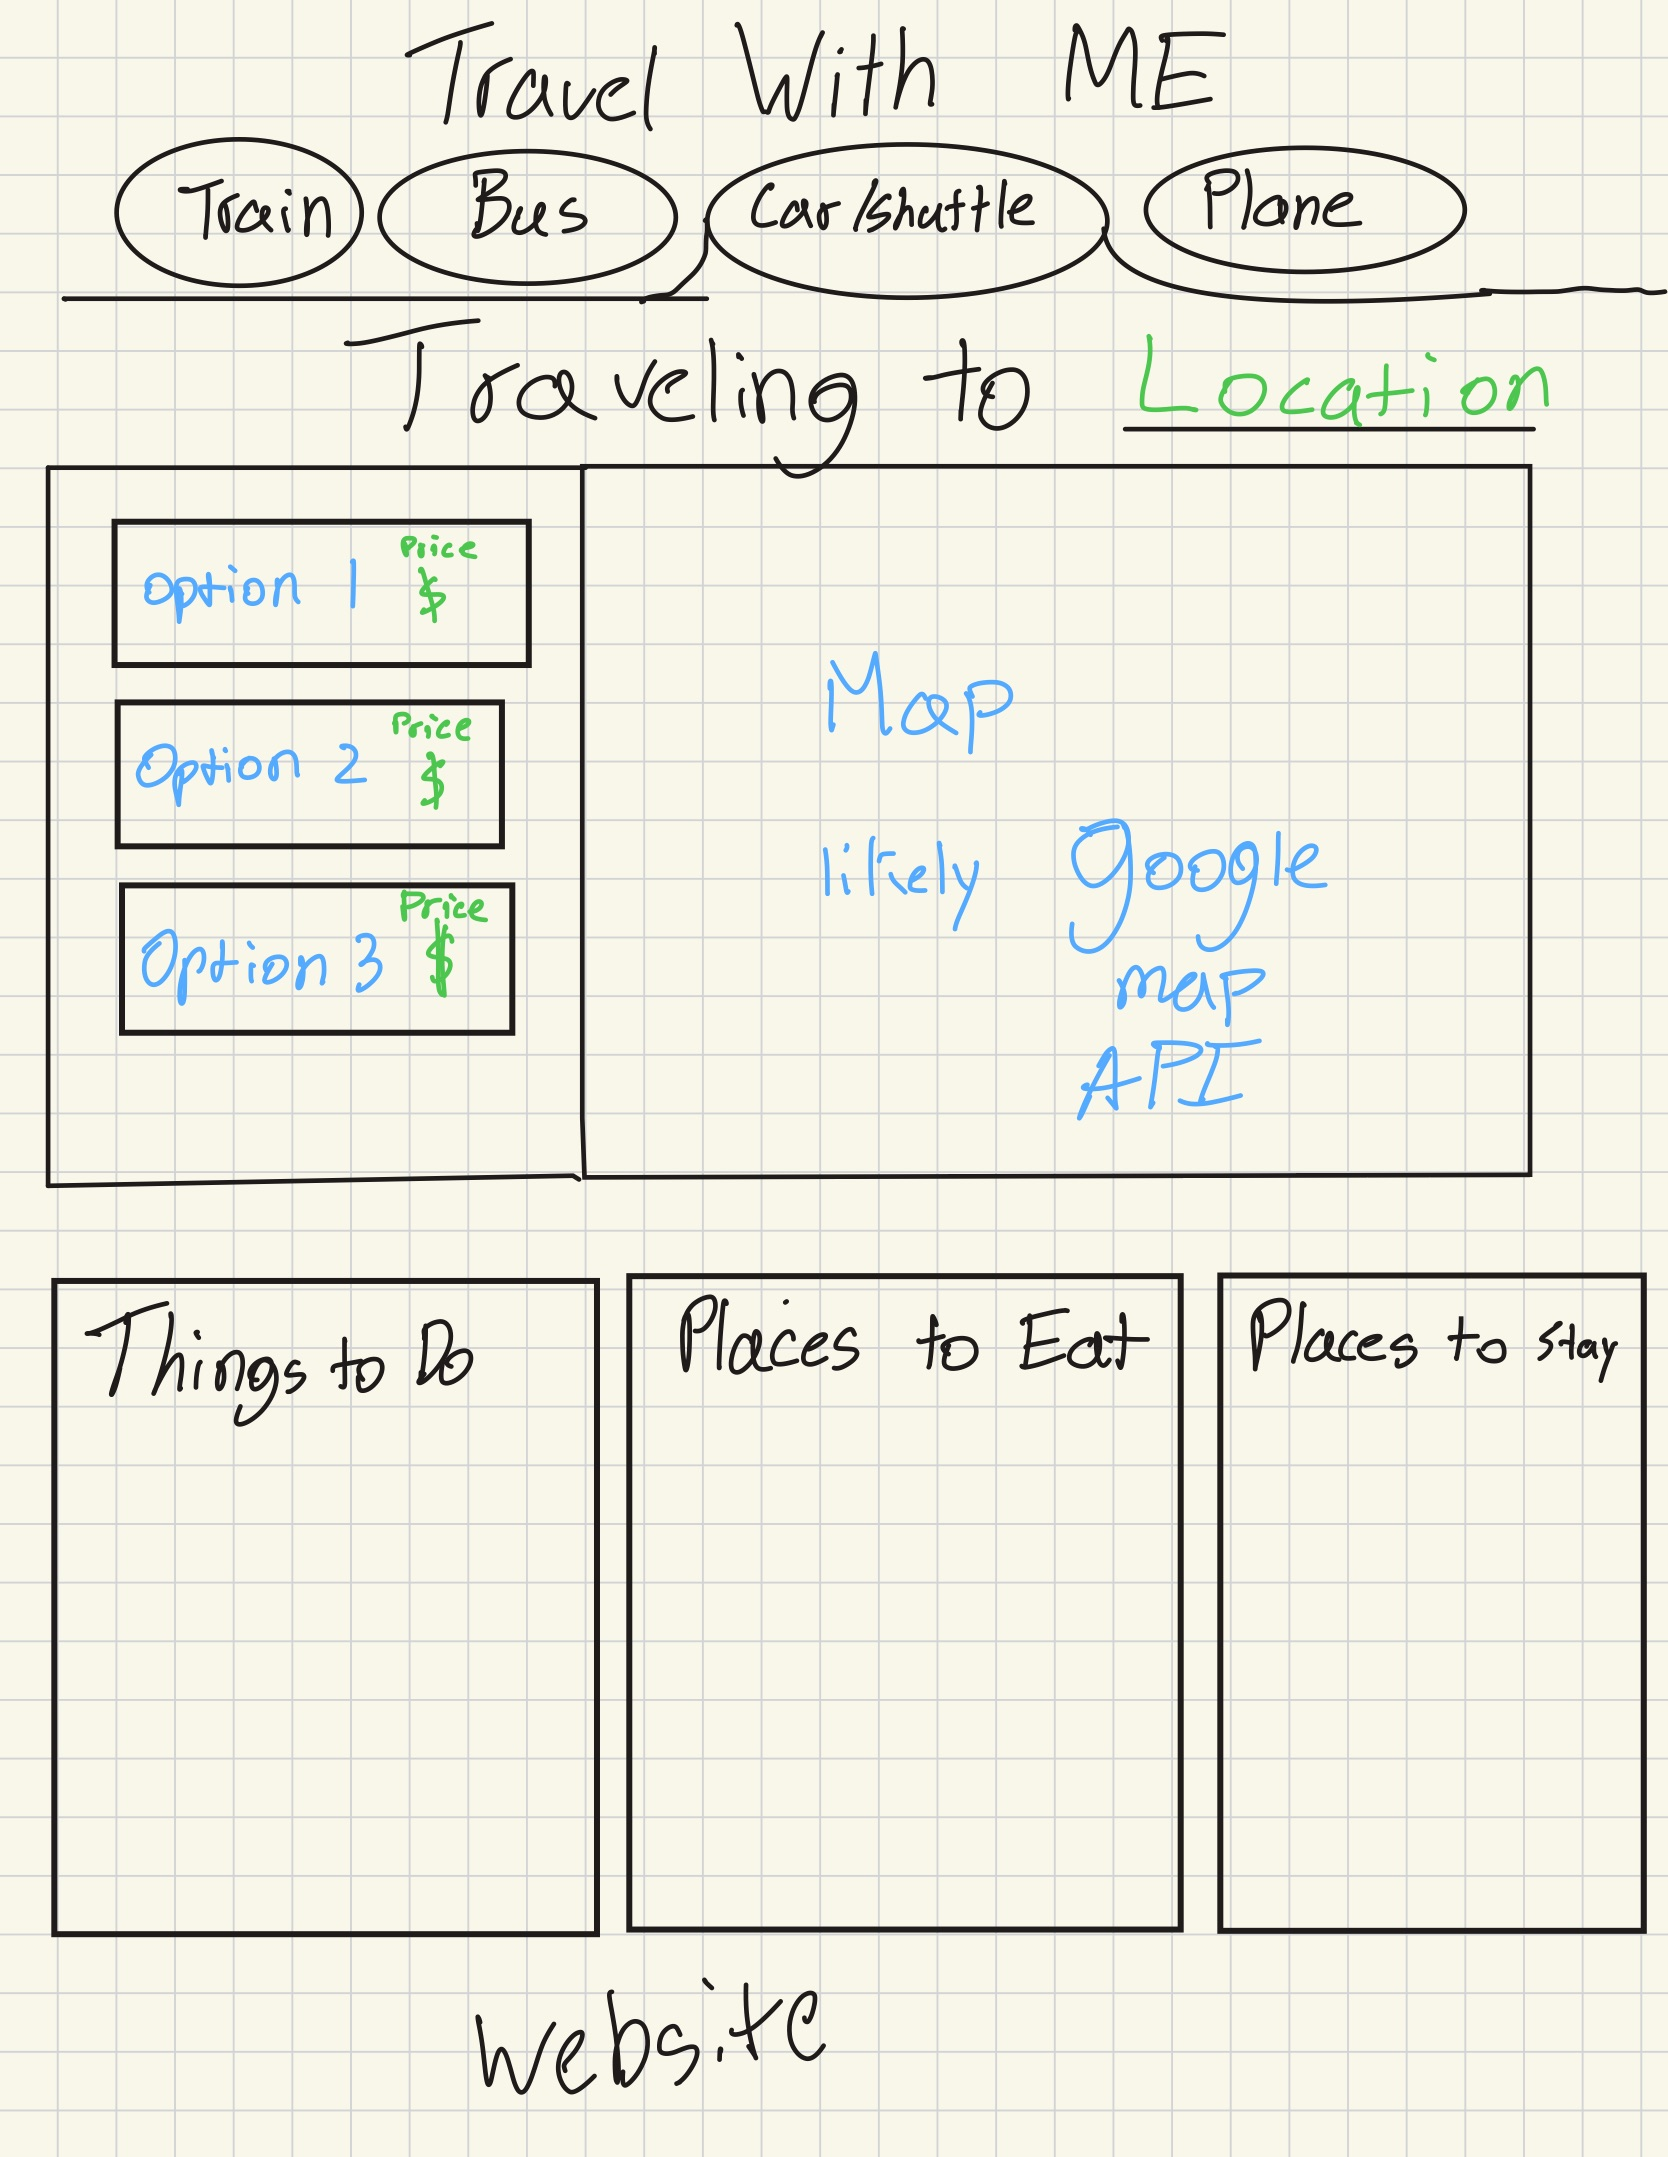 Travel With ME
Train Bus Car/shuttle Plane
Traveling to Location
Price
option 1 $
Price
Option 2 $
Price
Option 3 $
Map
likely google
map
API
Things to Do
Places to Eat
Places to stay
Website